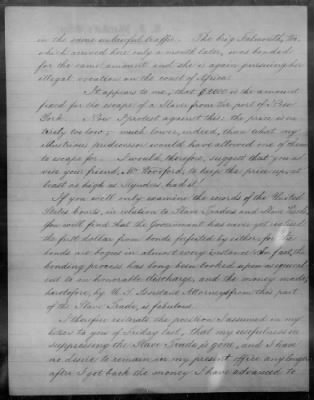 in the same unlawful traffic. The brig Falmouth, too,
which arrived here only a month later, was bonded
for the same amount and she is again pursuing her
illegal vocation on the coast of Africa.
It appears to me, that $ is the amount
fixed for the escape of a Slaver from the port of New
York. Now I protest against this: the price is en-
tirely too low; much lower, indeed, than what my
illustrious predecessor would have allowed one of them
to escape for. I would, therefore, suggest that you ad-
vise your friend, Mr. to keep the price up, at
least as high as Rynders, had it.
If you will only examine the records of the United
States Courts, in relation to Slave Traders and Slave
You will find that the Government has never yet realised
the first dollar from bonds forfeited by either, for the
bonds are bogus in almost every instance. In fact, the
bonding process has long been looked upon as equival-
ent to an honorable discharge, and the money made,
heretofore, by U. S. Assistant Attorneys from this part
of the Slave Trade, is fabulous.
I therefore reiterate the position I assumed in my
letter to you of Friday last, that my usefulness in
suppressing the Slave Trade is gone, and I have
no desire to remain in my present office any longer
after I get back the money I have advanced to